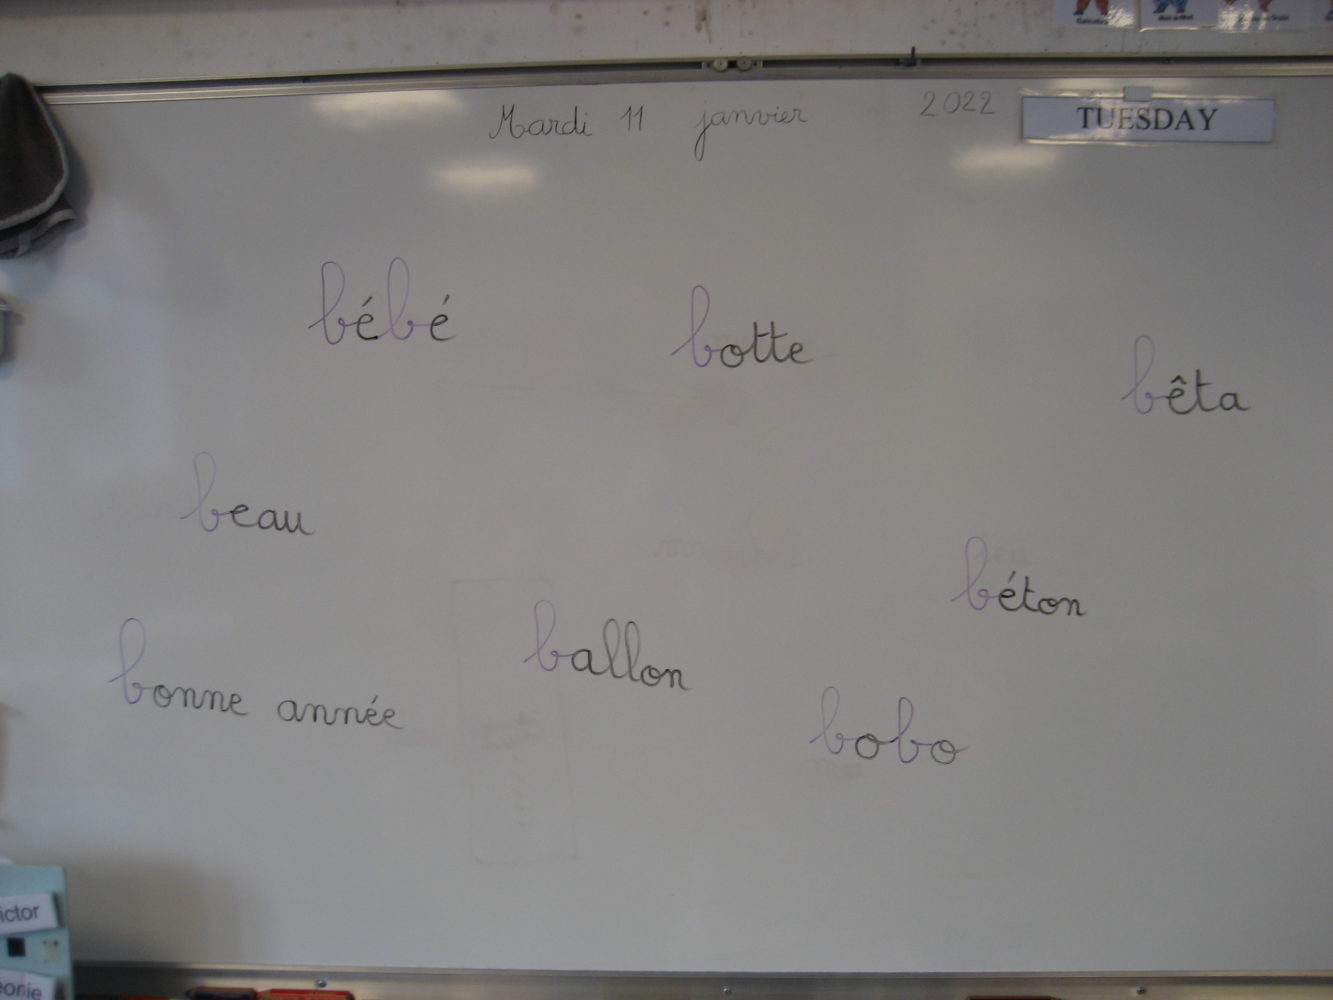 Mardi 11 janvier 2022
TUESDAY
bébé
botte
bêta
beau
béton
ballon
bonne année
bobo
ictor
éonie